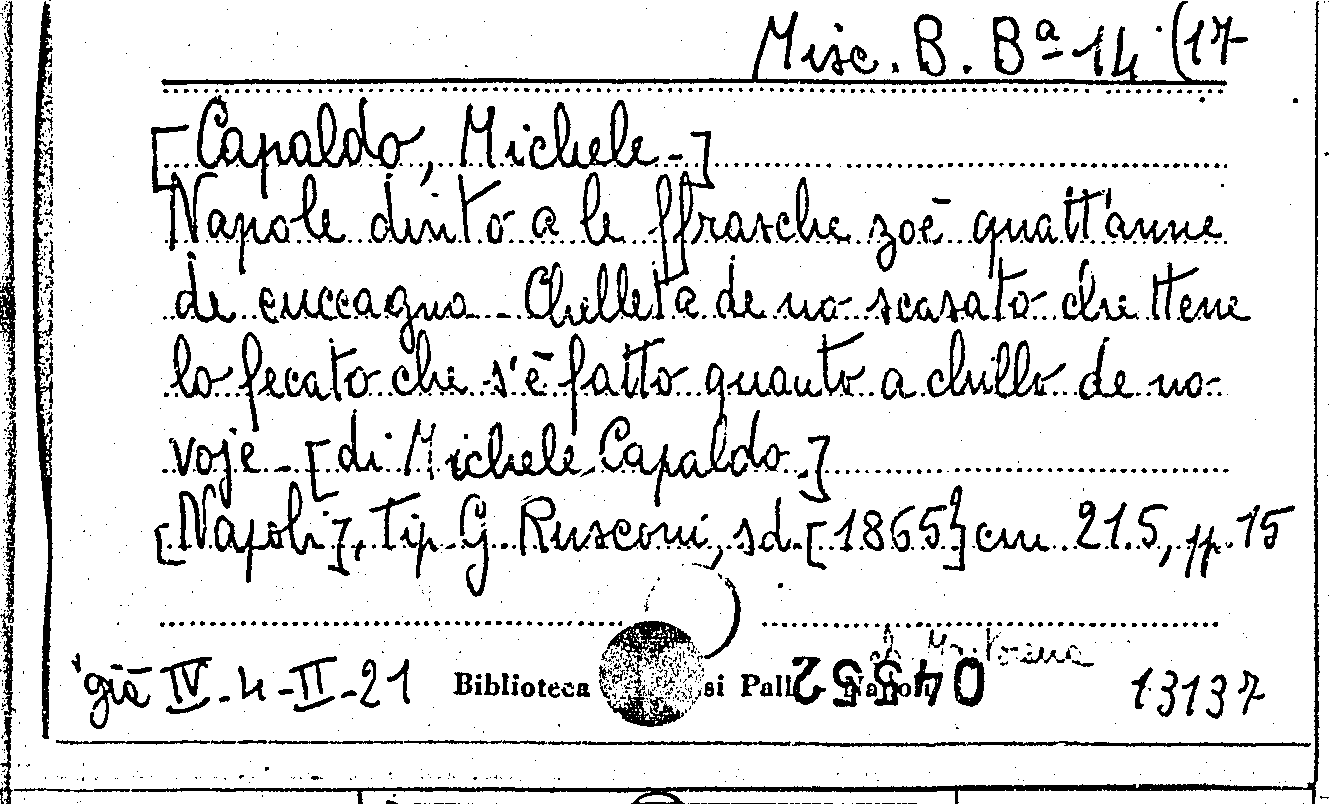 Misc. B. Bª 14 (17
[Capaldo, Michele -]
Napole dinto a le ffrasche zoè quatt'anne
de cuccagna - Chelleta de no scasato che ttene
lo fecato che s'è fatto quanto a chillo de no
voje - [di Michele Capaldo.]
[Napoli], Tip. G. Rusconi, s.d. [1865] cm 21.5, pp. 15
già IV-4-II-21 Biblioteca si Pall Napoli 13137
04552